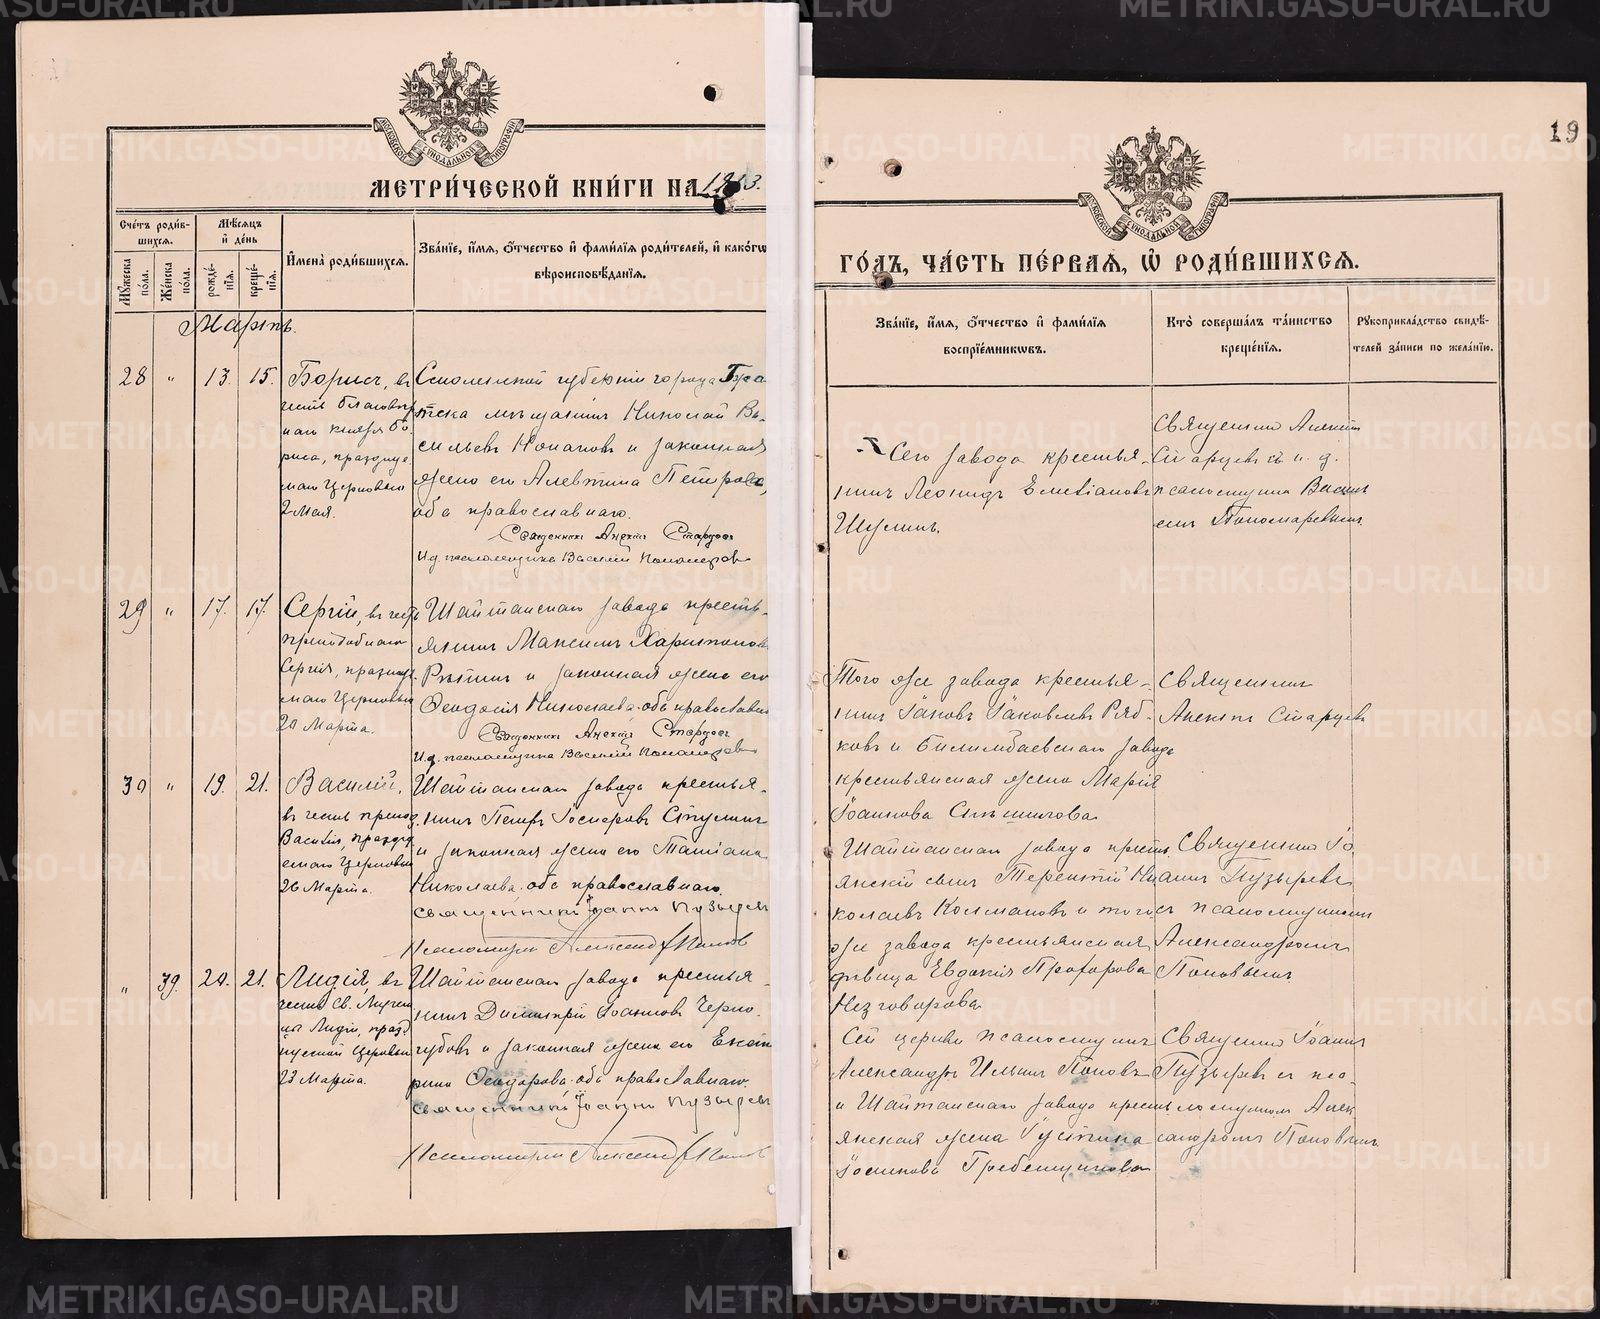 МЕТРИ́ЧЕСКОЙ КНИ́ГИ НА 1913.
Сче́тъ роди́в-
шихсѧ.
Мѣ́сѧцъ
и҆ де́нь
Мꙋ́жеска по́ла.
Же́нска по́ла.
рожде́-
нїѧ.
креще́-
нїѧ.
И҆мена̀ роди́вшихсѧ.
Зва́нїе, и҆́мѧ, ѻ҆́тчество и҆ фами́лїѧ роди́телей, и҆ како́гѡ
вѣроисповѣ́данїѧ.
Мартъ.
28 " 13. 15. Борисъ, въ
честь благовѣр
наго князя Бо-
риса, праздну́е
маго Церковью
2 Мая.
Смоленской губерніи города
мѣщанинъ Николай Ва-
сильевъ и законная
жена его Алевтина Петрова,
оба православнаго.
Священникъ Алексѣй Старцевъ
И.д. псаломщика Василій Пономаревъ
29 " 17. 17. Сергій, въ честь
преподобнаго
Сергія, праздну́е
маго Церковью
20 Марта.
Шайтанскаго завода кресть-
янинъ Максимъ Харитоновъ
и законная жена его
Ѳеодосія Николаева оба православн
Священникъ Алексѣй Старцевъ
И.д. псаломщика Василій Пономаревъ
30 " 19. 21. Василій,
въ честь препод.
Василія, праздну
емаго Церковью
26 Марта.
Шайтанскаго завода крестья-
нинъ Петръ Стулинъ
и законная жена его Татіана
Николаева оба православнаго.
Священникъ Іоаннъ Пузырев
Псаломщикъ Александръ Попов
" 39. 20. 21. Лидія, въ
честь св. Мучени
цы Лидіи, празд
нуемой Церковью
23 Марта.
Шайтанскаго завода крестья-
нинъ Димитрій Іоанновъ Черно-
губовъ и законная жена его Екате
рина Ѳеодорова оба православнаго.
Священникъ Іоаннъ Пузырев
Псаломщикъ Александръ Попов
19
ГО́ДЪ, ЧА́СТЬ ПЕ́РВАѦ, Ѡ҆ РОДИ́ВШИХСѦ.
Зва́нїе, и҆́мѧ, ѻ҆́тчество и҆ фами́лїѧ
воспрїе́мникѡвъ.
Кто̀ соверша́лъ та́инство
креще́нїѧ.
Рꙋкоприкла́дство свидѣ́-
телей за́писи по жела́нїю.
Сего завода крестья-
нинъ Леонидъ Емеліановъ
Шулинъ.
Священникъ Алексѣй
Старцевъ съ и. д.
псаломщика Васи
емъ Пономаревымъ
Того же завода крестья-
нинъ Іаковъ Іаковлевъ Ряб-
ковъ и Билимбаевскаго завода
крестьянская жена Марія
Іоаннова
Священникъ
Алексѣй Старцевъ
Шайтанскаго завода кресть
янскій сынъ Терентій Ни
колаевъ Колмаковъ и того
же завода крестьянская
дѣвица Евдокія Прохорова
Незговорова
Священникъ Іо
аннъ Пузыревъ
съ псаломщикомъ
Александромъ
Поповымъ
Сей церкви псаломщикъ
Александръ Ильинъ Поповъ
и Шайтанскаго завода кресть
янская жена Іустина
Іосифова Гребенщикова
Священникъ Іоаннъ
Пузыревъ съ пса-
ломщикомъ Алек
сандромъ Поповымъ
METRIKI.GASO-URAL.RU